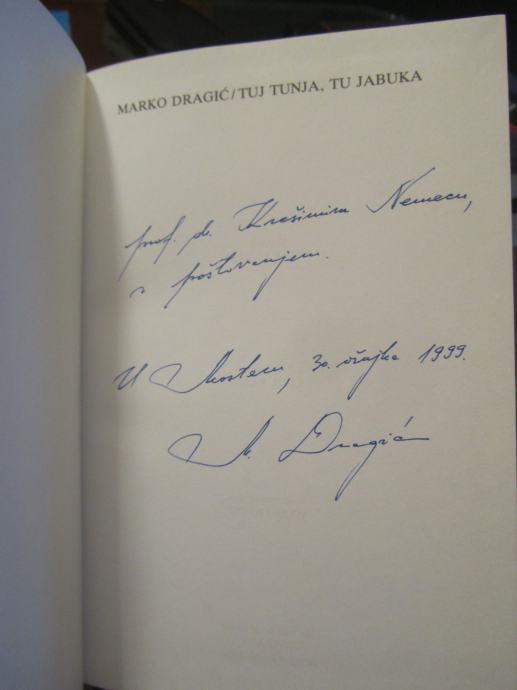 MARKO DRAGIĆ / TUJ TUNJA, TU JABUKA
prof. dr. Krešimiru Nemecu,
s poštovanjem.
U Mostaru, 30. ožujka 1999.
M. Dragić